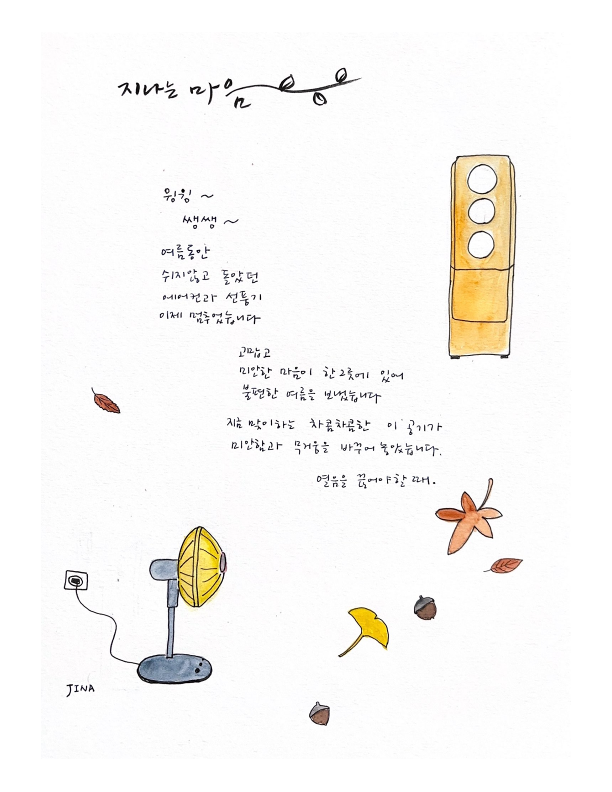 지나는 마음
윙윙 ~
쌩쌩 ~
여름동안
쉬지않고 돌았던
에어컨과 선풍기
이제 멈추었습니다
고맙고
미안한 마음이 한그릇에 있어
불편한 여름을 보냈습니다
지금 맞이하는 차콤차콤한 이 공기가
미안함과 무거움을 바꾸어 놓았습니다.
얼음을 끓여야 할 때.
JINA